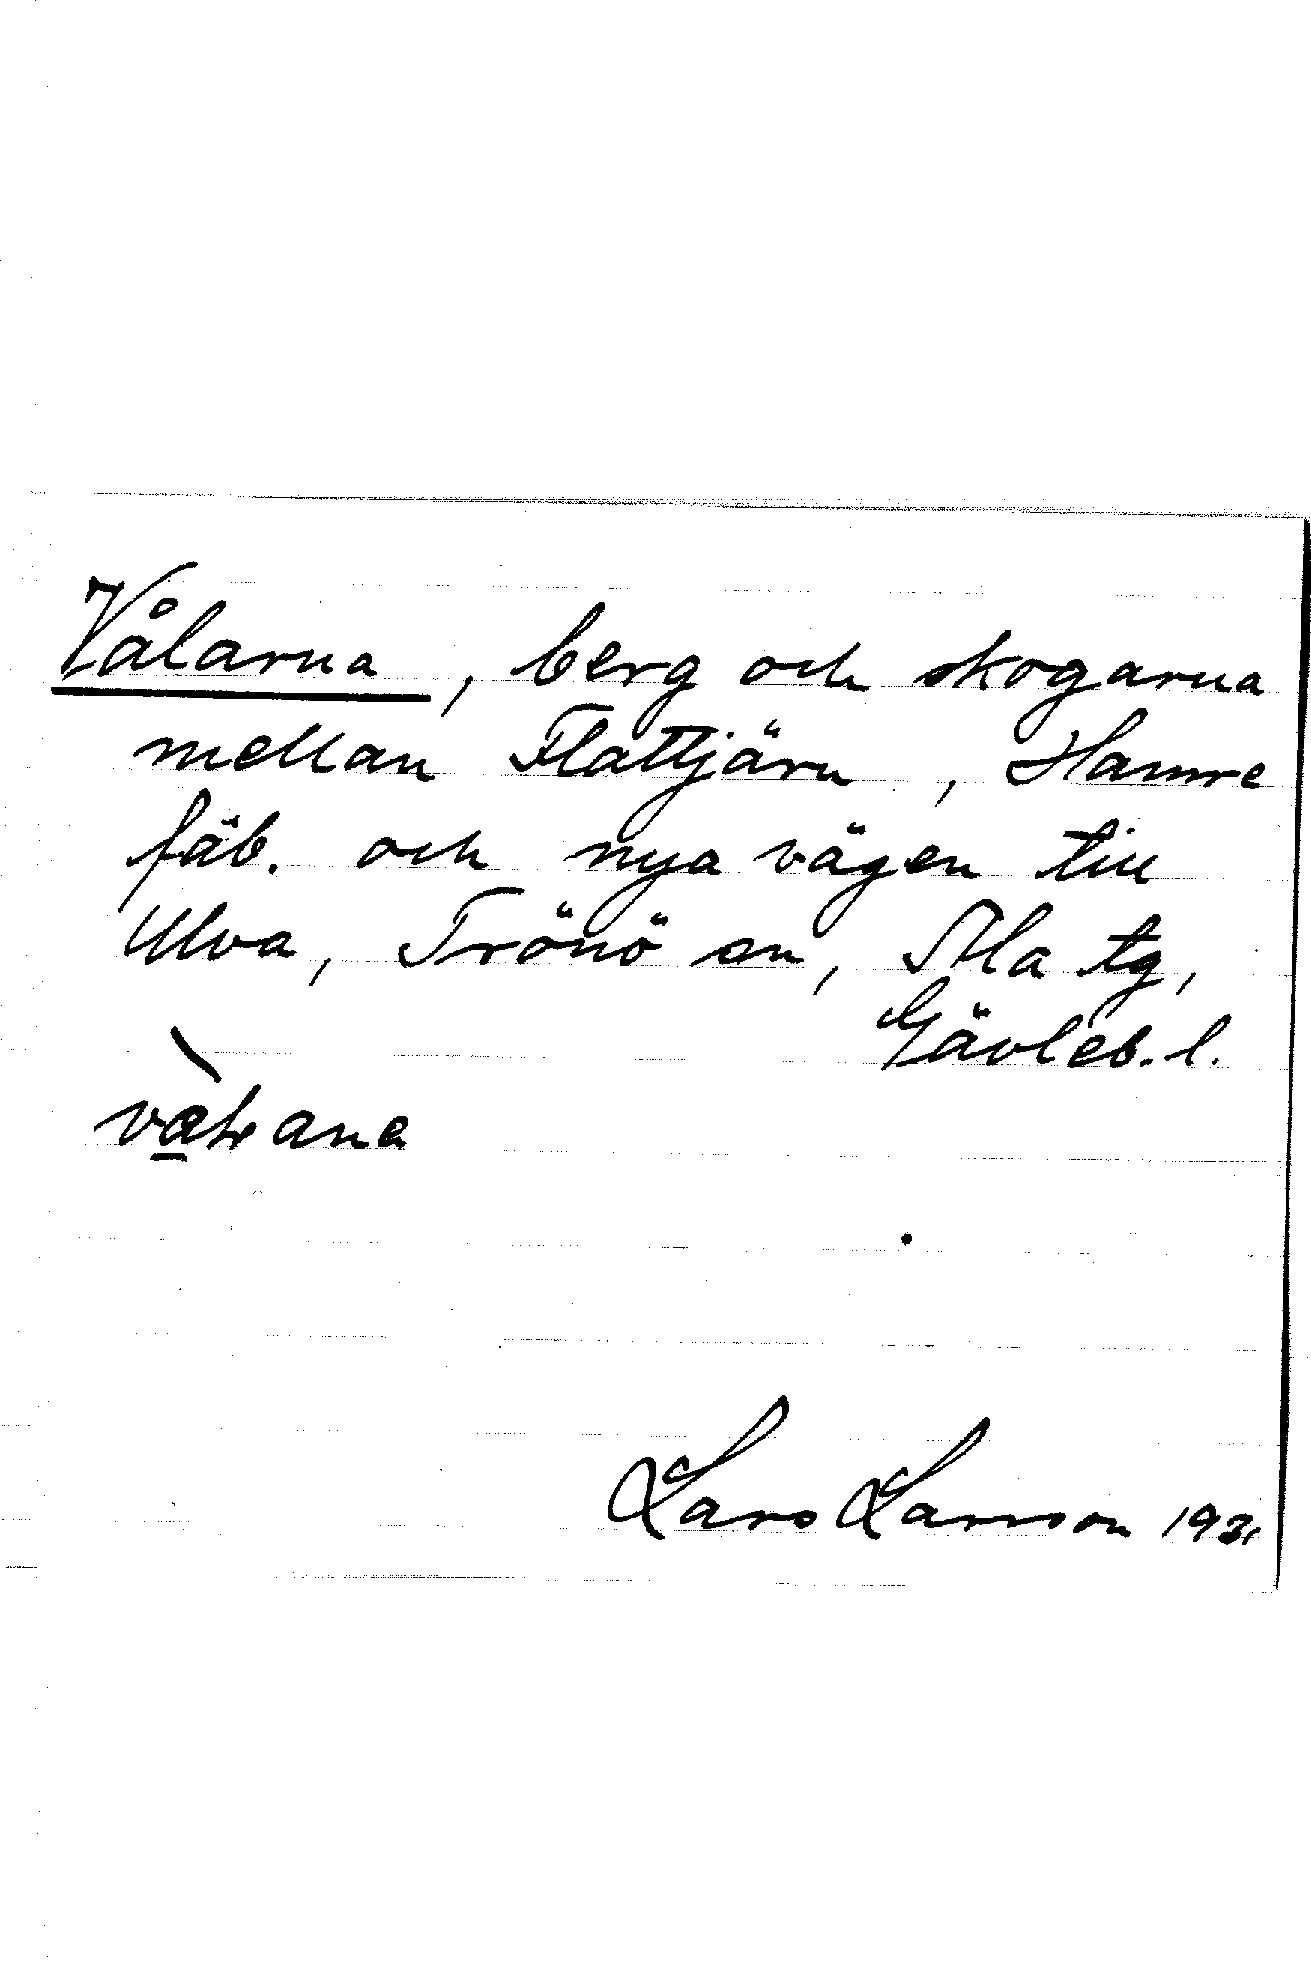 Vålarna, berg och skogarna
mellan Flattjärn, Hamre
fäb. och nya vägen till
Ulva, Trönö sn, Ala tg,
Gävleb. l.
Lars Larsson 1931